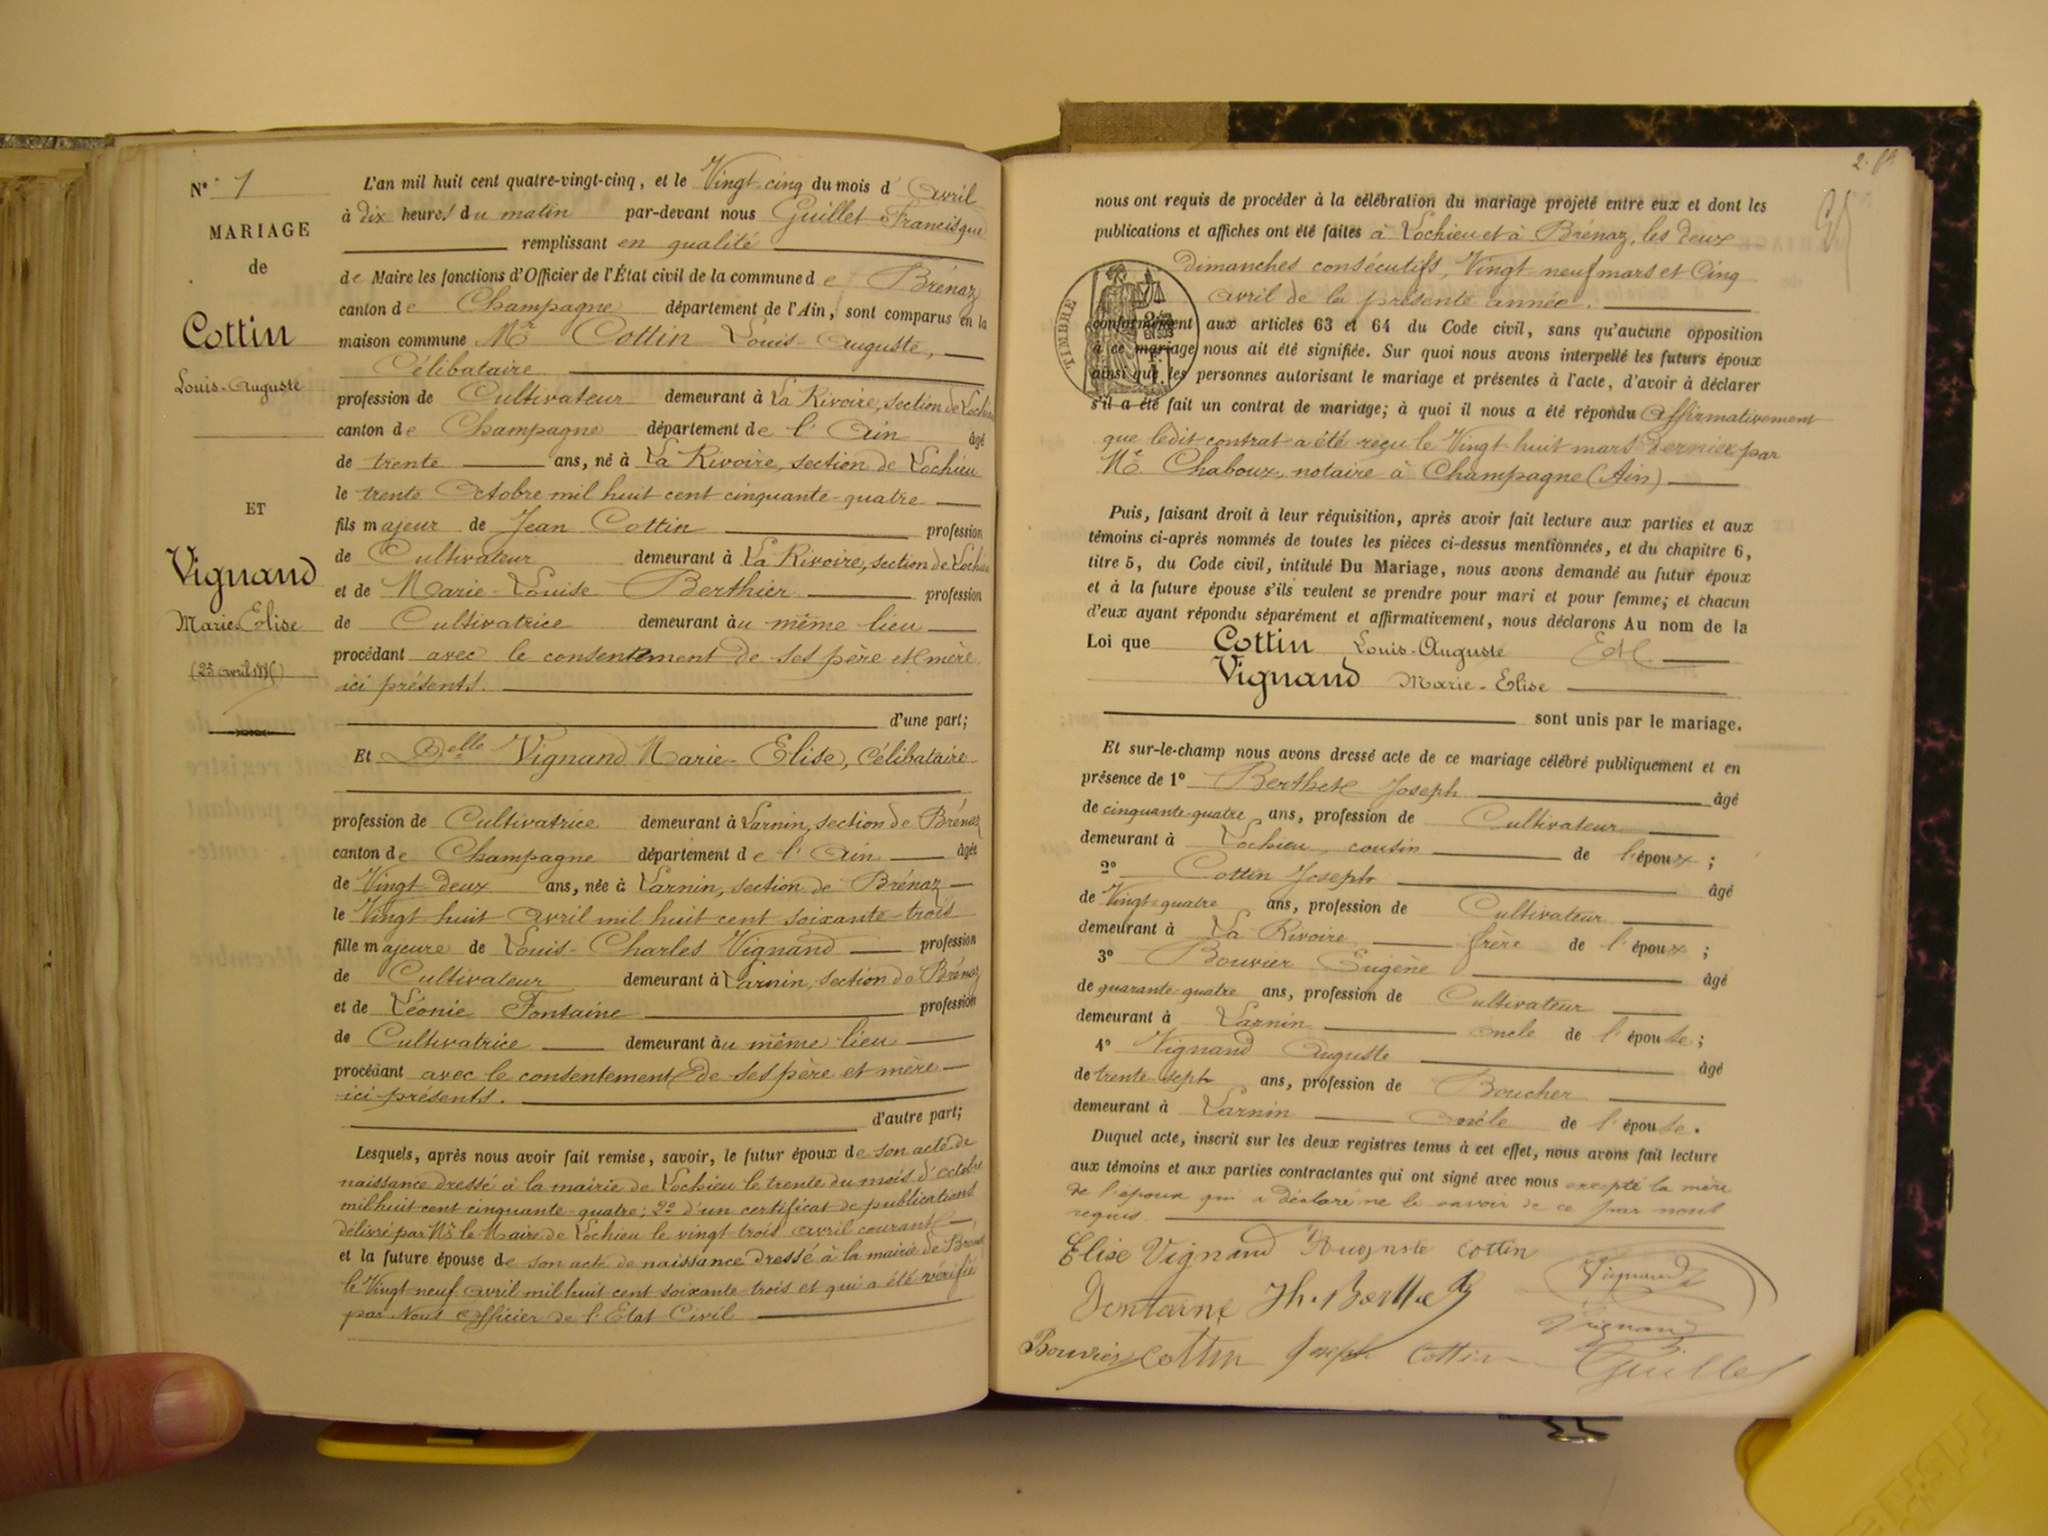 N° 1
MARIAGE
de
Cottin
Louis-Auguste
ET
Vignand
Marie-Elise
(25 avril 1885)
L'an mil huit cent quatre-vingt-cinq, et le Vingt-cinq du mois d'Avril
à dix heures du matin par-devant nous Guillet Francisque
remplissant en qualité
de Maire les fonctions d'Officier de l'État civil de la commune de Brénaz
canton de Champagne département de l'Ain, sont comparus en la
maison commune Mr Cottin Louis-Auguste,
Célibataire
profession de Cultivateur demeurant à La Rivoire, section de Lochieu
canton de Champagne département de l'Ain âgé
de trente ans, né à La Rivoire, section de Lochieu
le trente Octobre mil huit cent cinquante-quatre
fils majeur de Jean Cottin profession
de Cultivateur demeurant à La Rivoire, section de Lochieu
et de Marie-Louise Berthier profession
de Cultivatrice demeurant au même lieu
procédant avec le consentement de ses père et mère
ici présents.
d'une part;
Et Delle Vignand Marie-Elise, Célibataire
profession de Cultivatrice demeurant à Larnin, section de Brénaz
canton de Champagne département de l'Ain âgée
de Vingt-deux ans, née à Larnin, section de Brénaz
le Vingt-huit Avril mil huit cent soixante-trois
fille majeure de Louis-Charles Vignand profession
de Cultivateur demeurant à Larnin, section de Brénaz
et de Léonie Fontaine profession
de Cultivatrice demeurant au même lieu
procédant avec le consentement de ses père et mère
ici présents.
d'autre part;
Lesquels, après nous avoir fait remise, savoir, le futur époux de son acte de
naissance dressé à la mairie de Lochieu le trente du mois d'octobre
mil huit cent cinquante-quatre; 2° d'un certificat de publications
délivré par Mr le Maire de Lochieu le vingt-trois avril courant,
et la future épouse de son acte de naissance dressé à la mairie de Brénaz
le Vingt-neuf avril mil huit cent soixante-trois et qui a été vérifié
par Nous Officier de l'Etat Civil
nous ont requis de procéder à la célébration du mariage projeté entre eux et dont les
publications et affiches ont été faites à Lochieu et à Brénaz, les deux
dimanches consécutifs, Vingt-neuf mars et Cinq
avril de la présente année.
TIMBRE
conformément aux articles 63 et 64 du Code civil, sans qu'aucune opposition
à ce mariage nous ait été signifiée. Sur quoi nous avons interpellé les futurs époux
ainsi que les personnes autorisant le mariage et présentes à l'acte, d'avoir à déclarer
s'il a été fait un contrat de mariage; à quoi il nous a été répondu Affirmativement
que ledit contrat a été reçu le Vingt-huit mars dernier par
Me Chaboux, notaire à Champagne (Ain)
Puis, faisant droit à leur réquisition, après avoir fait lecture aux parties et aux
témoins ci-après nommés de toutes les pièces ci-dessus mentionnées, et du chapitre 6,
titre 5, du Code civil, intitulé Du Mariage, nous avons demandé au futur époux
et à la future épouse s'ils veulent se prendre pour mari et pour femme; et chacun
d'eux ayant répondu séparément et affirmativement, nous déclarons Au nom de la
Loi que Cottin Louis-Auguste Et
Vignand Marie-Elise
sont unis par le mariage.
Et sur-le-champ nous avons dressé acte de ce mariage célébré publiquement et en
présence de 1° Berthet Joseph âgé
de cinquante-quatre ans, profession de Cultivateur
demeurant à Lochieu, cousin de l'époux;
2° Cottin Joseph âgé
de Vingt-quatre ans, profession de Cultivateur
demeurant à La Rivoire frère de l'époux;
3° Bouvier Eugène âgé
de quarante-quatre ans, profession de Cultivateur
demeurant à Larnin oncle de l'épouse;
4° Vignand Auguste âgé
de trente-sept ans, profession de Boucher
demeurant à Larnin oncle de l'épouse.
Duquel acte, inscrit sur les deux registres tenus à cet effet, nous avons fait lecture
aux témoins et aux parties contractantes qui ont signé avec nous excepté la mère
de l'époux qui a déclaré ne le savoir de ce par nous
requis.
Elise Vignand Auguste Cottin Vignand
Fontaine Jh. Berthet Vignand
Bouvier Cottin Joseph Cottin Guillet